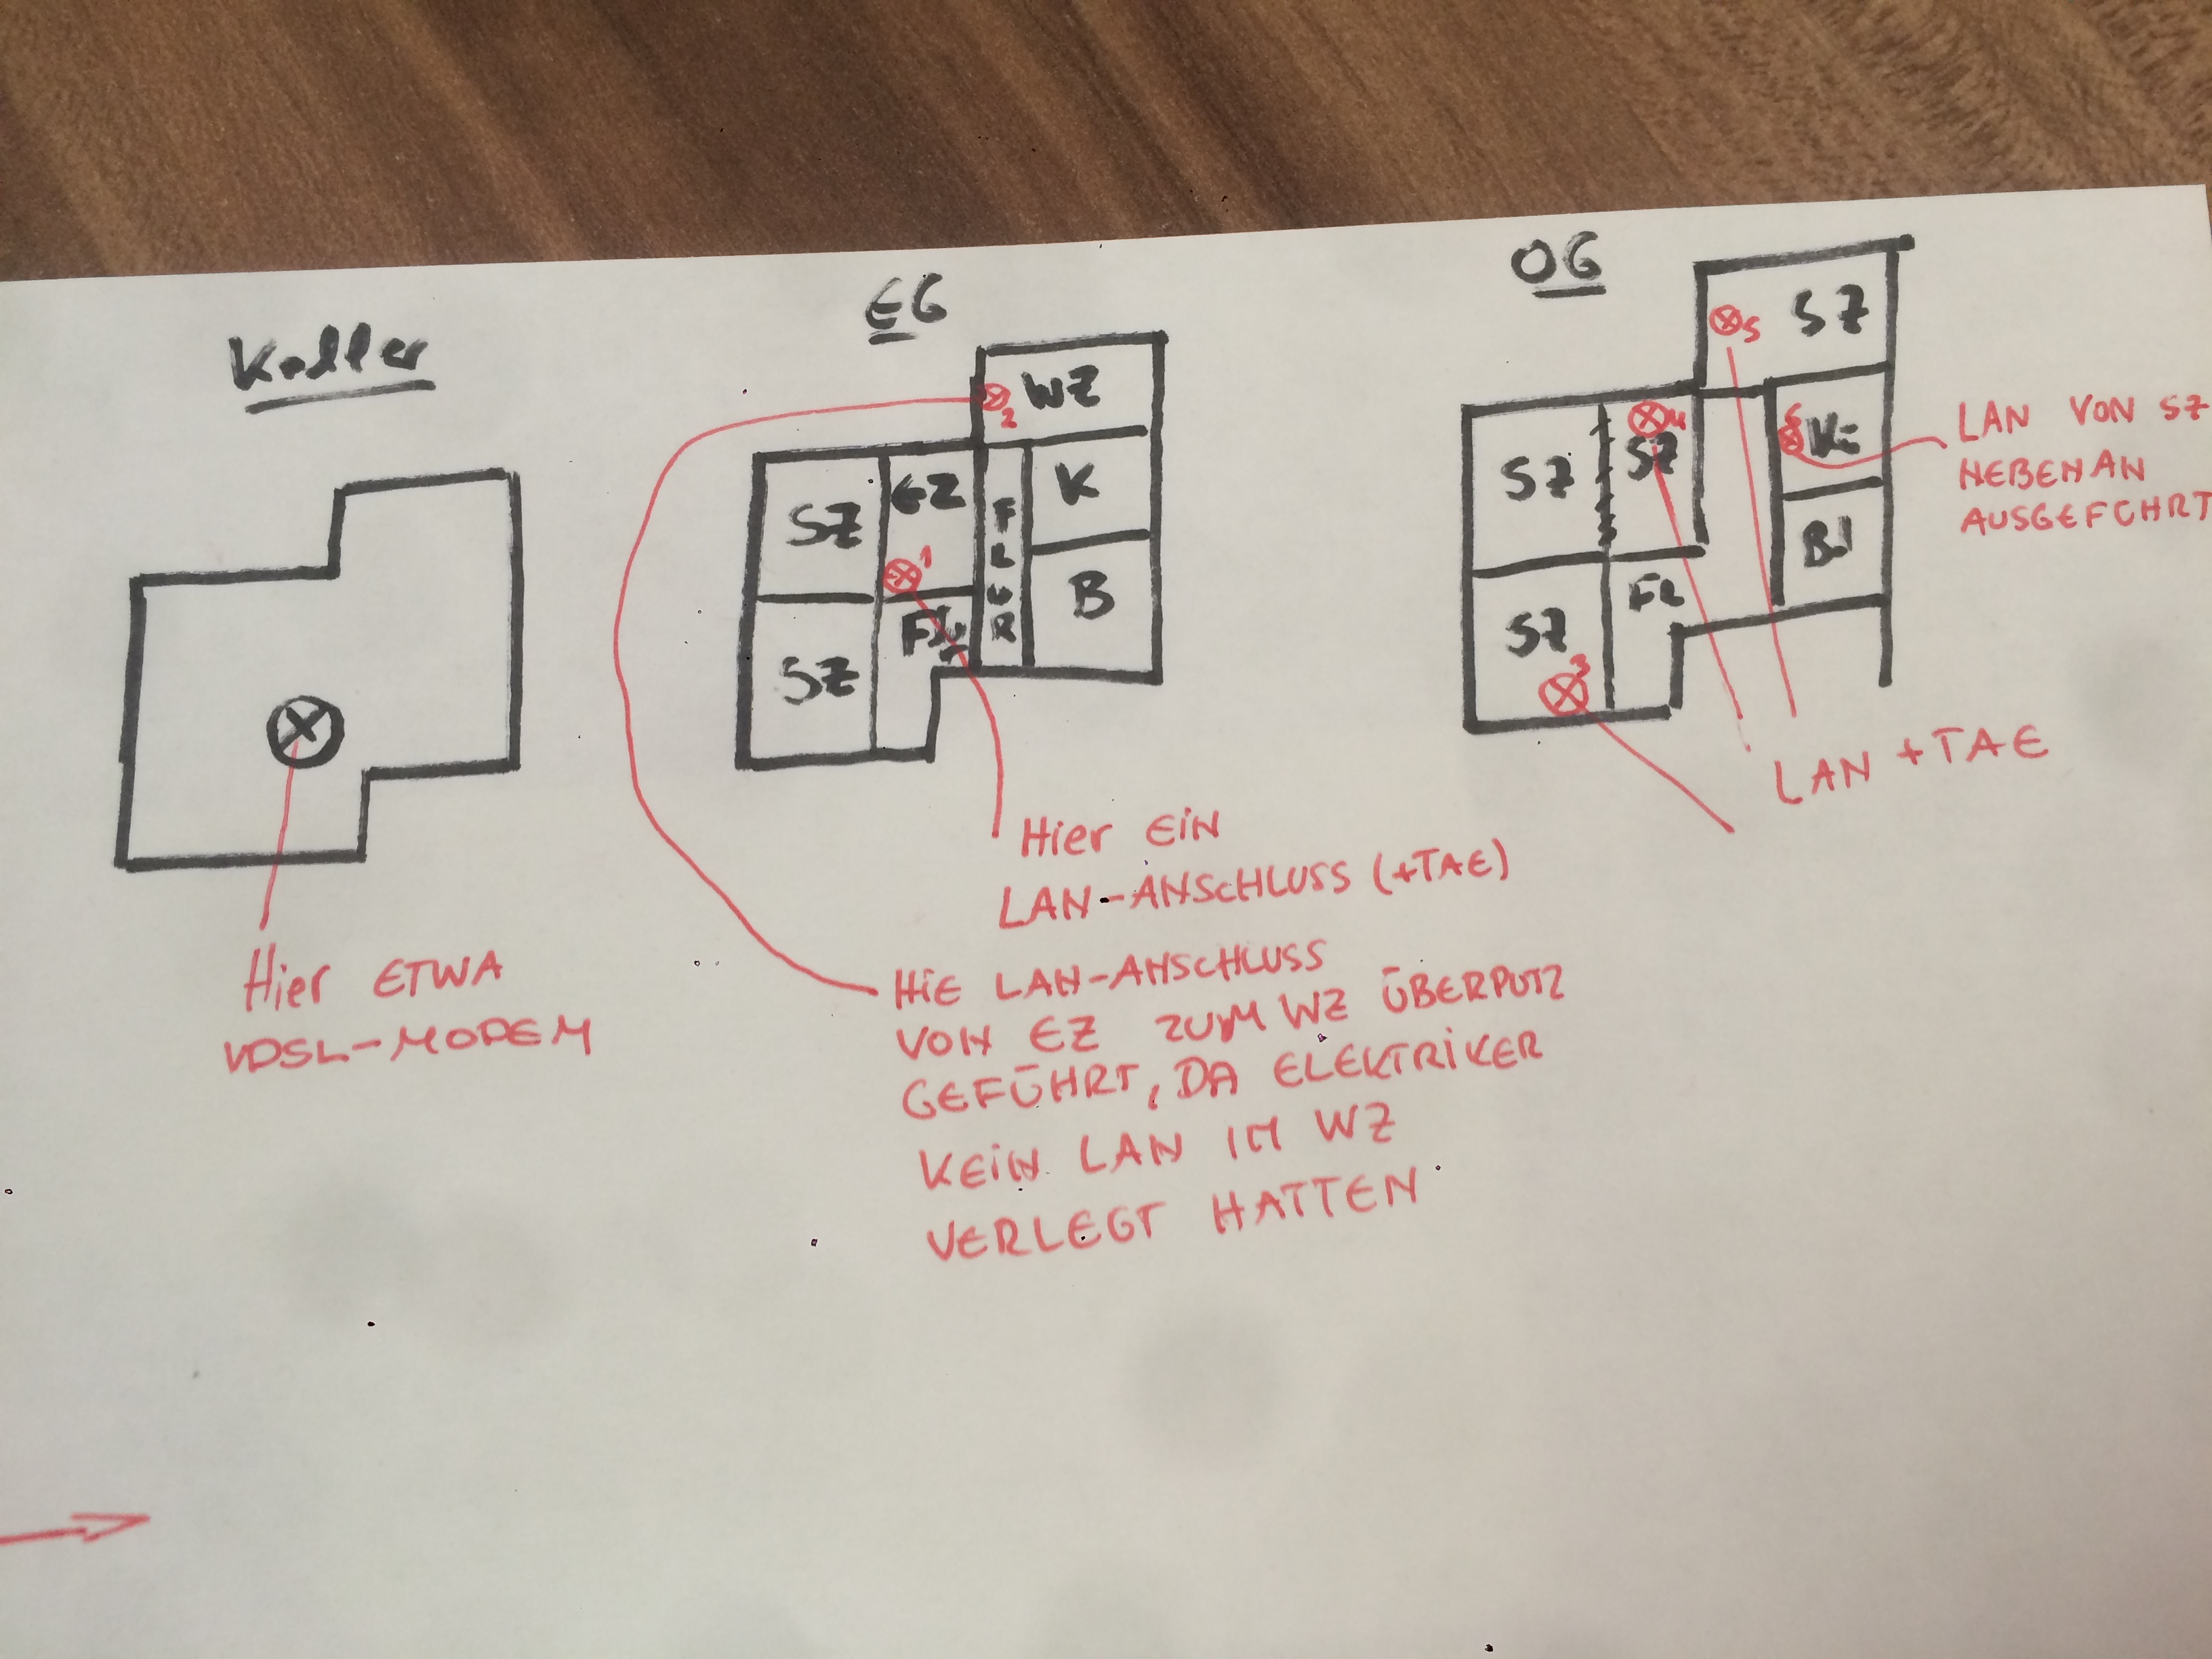 Keller
Hier ETWA
VDSL-MODEM
EG
2
WZ
SZ
EZ
FLUR
K
1
SZ
B
Hier EiN
LAN-ANSCHLUSS (+TAE)
HiE LAN-ANSCHLUSS
VON EZ ZUM WZ ÜBERPUTZ
GEFÜHRT, DA ELEKTRiKER
KEiN LAN IM WZ
VERLEGT HATTEN
OG
5
SZ
SZ
4
SZ
6
Ki
LAN VON SZ
NEBENAN
AUSGEFÜHRT
FL
SZ
3
LAN + TAE